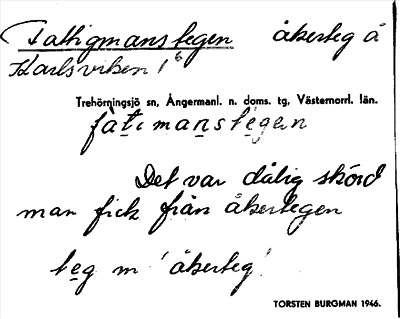 Fattigmanstegen åkerteg å
Karlsviken 1⁶
Trehörningsjö sn, Ångermanl. n. doms. tg, Västernorrl. län.
fatimanstegen
Det var dålig skörd
man fick från åkertegen
teg m 'åkerteg'
TORSTEN BURGMAN 1946.